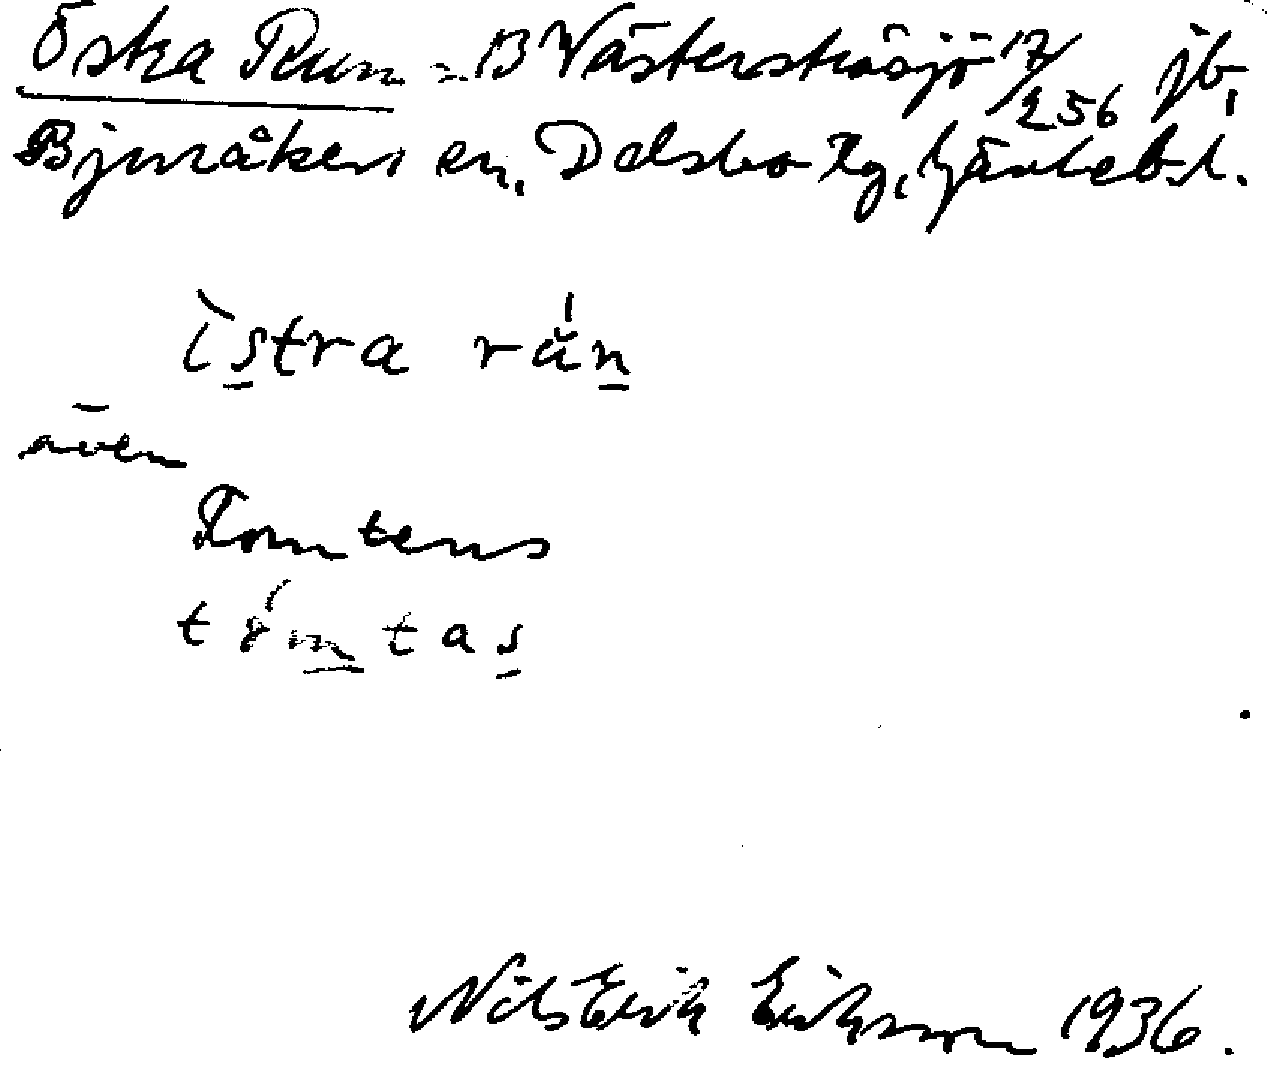 Östra Run = B Västerstråsjö 17/256 jb,
Bjuråkers sn, Delsbo tg, Gävlebs l.
östra rån
även
Tomtens
tomtas
Nils Erik Eriksson 1936.